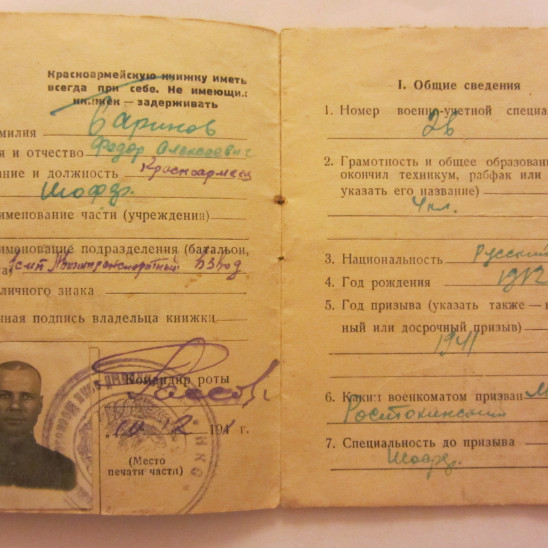 Красноармейскую книжку иметь
всегда при себе. Не имеющих
книжек — задерживать
амилия Баринов
я и отчество Федор Алексеевич
ание и должность Красноармеец
Шофер
именование части (учреждения)
именование подразделения (батальон,
та) Автотранспортный взвод
личного знака
чная подпись владельца книжки
Командир роты
10 12 1941 г.
(Место
печати части)
НКО
I. Общие сведения
1. Номер военно-учетной специал
26
2. Грамотность и общее образован
окончил техникум, рабфак или
указать его название)
4 кл.
3. Национальность Русский
4. Год рождения 1912
5. Год призыва (указать также — н
ный или досрочный призыв)
1941
6. Каким военкоматом призван М
Ростокинский
7. Специальность до призыва
Шофер